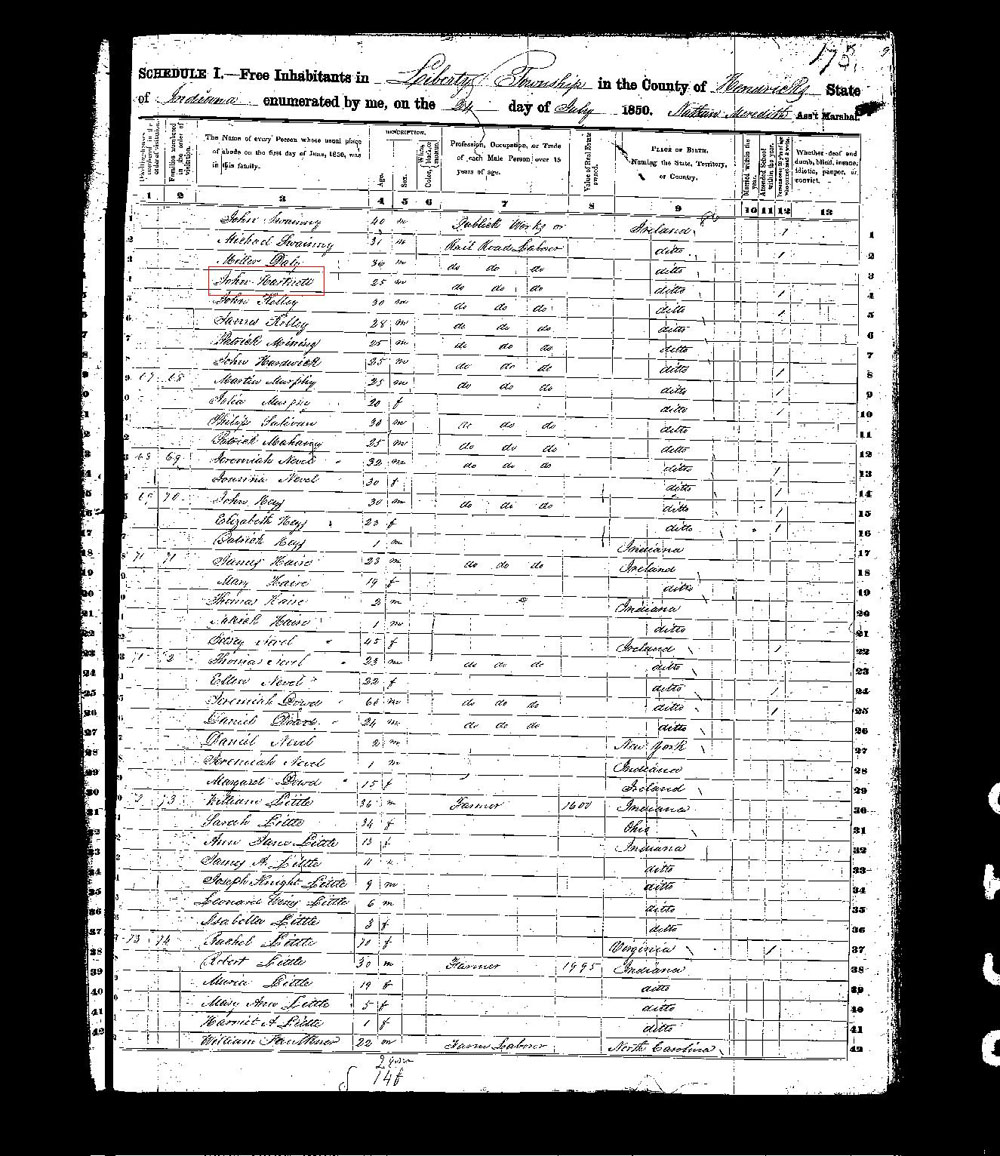 173.
SCHEDULE I.—Free Inhabitants in Liberty Township in the County of Hendricks State
of Indiana enumerated by me, on the day of July 1850. Nathan Meredith Ass't Marshal.
Dwelling-houses numbered in the order of visitation. Families numbered in the order of visitation. The Name of every Person whose usual place of abode on the first day of June, 1850, was in this family. DESCRIPTION. Age. Sex. Color, White, black, or mulatto. Profession, Occupation, or Trade of each Male Person over 15 years of age. Value of Real Estate owned. PLACE OF BIRTH. Naming the State, Territory, or Country. Married within the year. Attended School within the year. Whether deaf and dumb, blind, insane, idiotic, pauper, or convict.
1 2 3 4 5 6 7 8 9 10 11 12 13
1 John Swainny 40 m Publick Works or Ireland 1
2 Michael Swainny 31 m Rail Road Labour ditto 2
3 Miller Daly 36 m do do do ditto 3
John Hartnett 25 m do do do ditto 4
5 John Kelley 30 m do do do ditto 5
6 James Kelley 28 m do do do ditto 6
7 Patrick Mining 25 m do do do ditto 7
8 John Hardwick 25 m do do do ditto 8
9 67 68 Martin Murphy 25 m do do do ditto 9
Julia 20 f ditto 10
Philip Sulivan 30 m do do do ditto 11
Patrick Mahainy 25 m do do do ditto 12
68 69 Jeremiah Nevel 32 m do do do ditto 13
Nevel 30 f ditto 14
69 70 John Hay 30 m do do do ditto 15
Elizabeth Hay 23 f ditto 16
Patrick Hay 1 m Indiana 17
71 James Haire 23 m do do do Ireland 18
Mary Haire 19 f ditto 19
Thomas Haire 2 m Indiana 20
Patrick Haire 1 m ditto 21
Betsey Nevel 45 f Ireland 22
71 72 Thomas Nevel 23 m do do do ditto 23
Ellen Nevel 22 f ditto 24
Jeremiah Dowd 60 m do do do ditto 25
Daniel Dowd 24 m do do do ditto 26
Daniel Nevel 2 m New York 27
Jeremiah Nevel 1 m Indiana 28
Margaret Dowd 15 f Ireland 29
73 William Little 36 m Farmer 1600 Indiana 30
Sarah Little 34 f Ohio 31
Ann Jane Little 13 f Indiana 32
James A Little 11 ditto 33
Joseph Knight Little 9 m ditto 34
Leonard Little 6 m ditto 35
Isabella Little 3 f ditto 36
73 74 Rachel Little 70 f Virginia 37
Robert Little 30 m Farmer 1995 Indiana 38
Maria Little 19 f ditto 39
Mary Ann Little 5 f ditto 40
Harriet A Little 1 f ditto 41
William Faulkner 22 m Farm Labour North Carolina 42
14 f